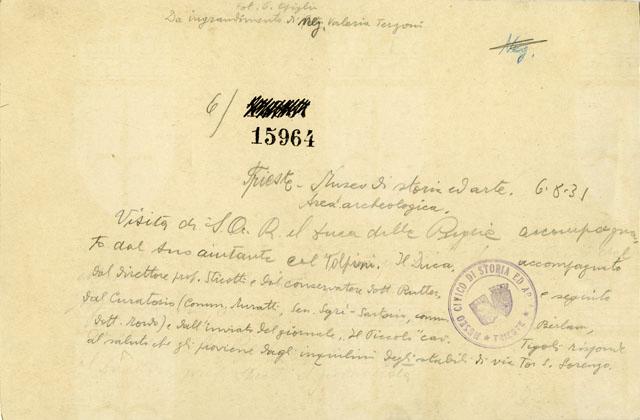 Fot. G. Giglio
Da ingrandimento di Neg. Valeria Tergoni
Neg.
6/
15964
Trieste - Museo di storia ed arte. 6.8.31
Area archeologica.
Visita di S.A.R. il Duca delle Puglie accompagna-
to dal suo aiutante col Volpini. Il Duca, accompagnato
dal direttore prof. Sticotti e dal conservatore dott. Rutter, e seguito
dal Curatorio (Comm. Auratti, Sen. Segrè-Sartorio, comm.
dott. Mordo) e dall'inviato del giornale "Il Piccolo" cav. Tigoli risponde
al saluto che gli proviene dagli inquilini degli stabili di via Tor S. Lorenzo.
MUSEO CIVICO DI STORIA ED ARTE
TRIESTE